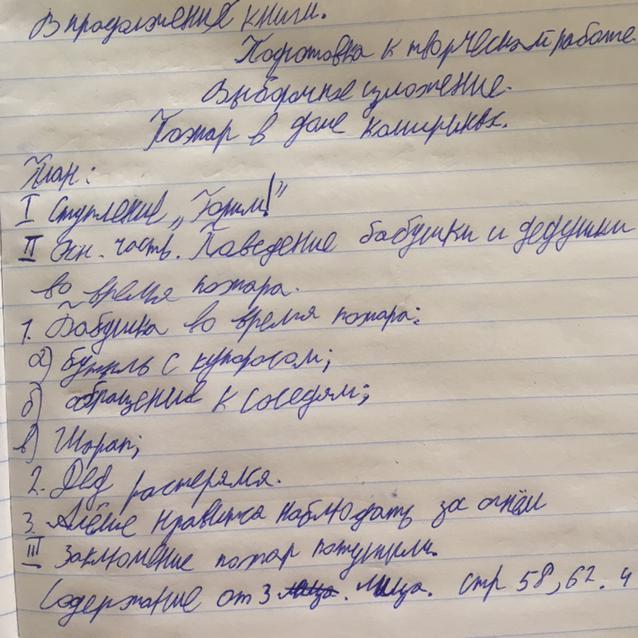 В продолжение книги.
Подготовка к творческой работе.
Выборочное изложение.
Пожар в доме Кашириных.
План:
I Ступление „Горим!"
II Осн. часть. Поведение бабушки и дедушки
во время пожара.
1. Бабушка во время пожара:
а) бутыль с купоросом;
б) обращение к соседям;
в) Шарап;
2. Дед растерялся.
3. Алёше нравится наблюдать за огнём
III Заключение пожар потушили.
Содержание от 3 лица. стр 58, 62. ч